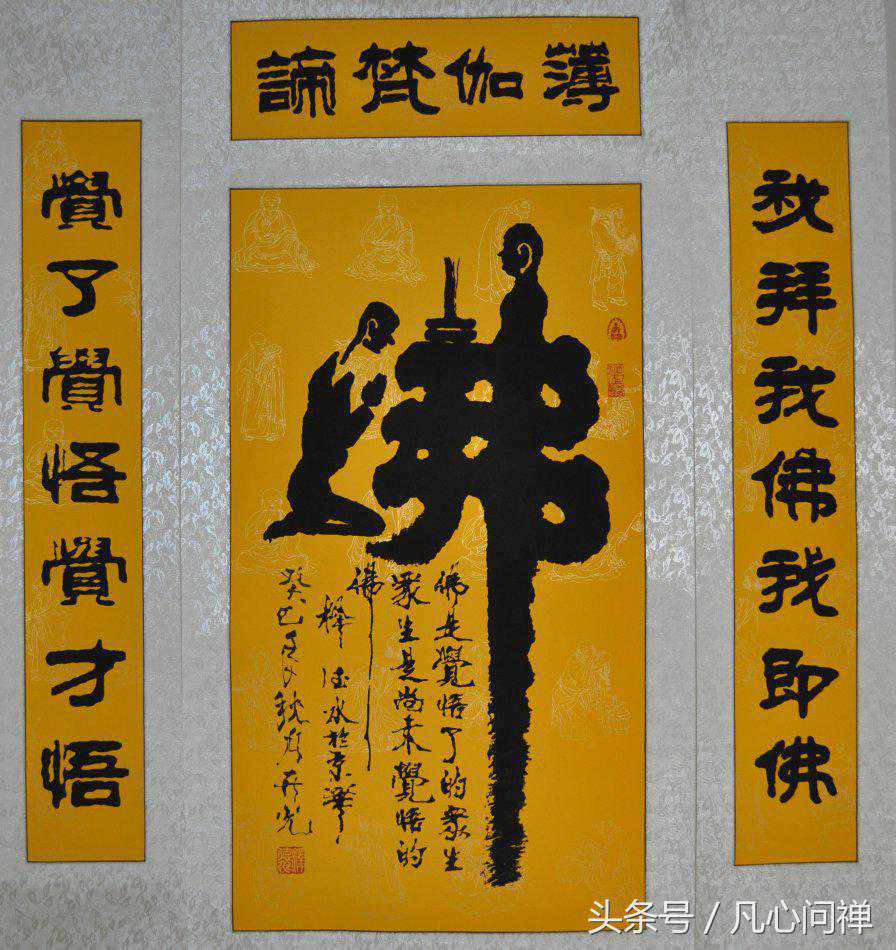 薄伽梵諦
我拜我佛我即佛
覺了覺悟覺才悟
佛
佛是覺悟了的衆生
衆生是尚未覺悟的
佛
釋
於京華
癸巳
开光
头条号 / 凡心问禅